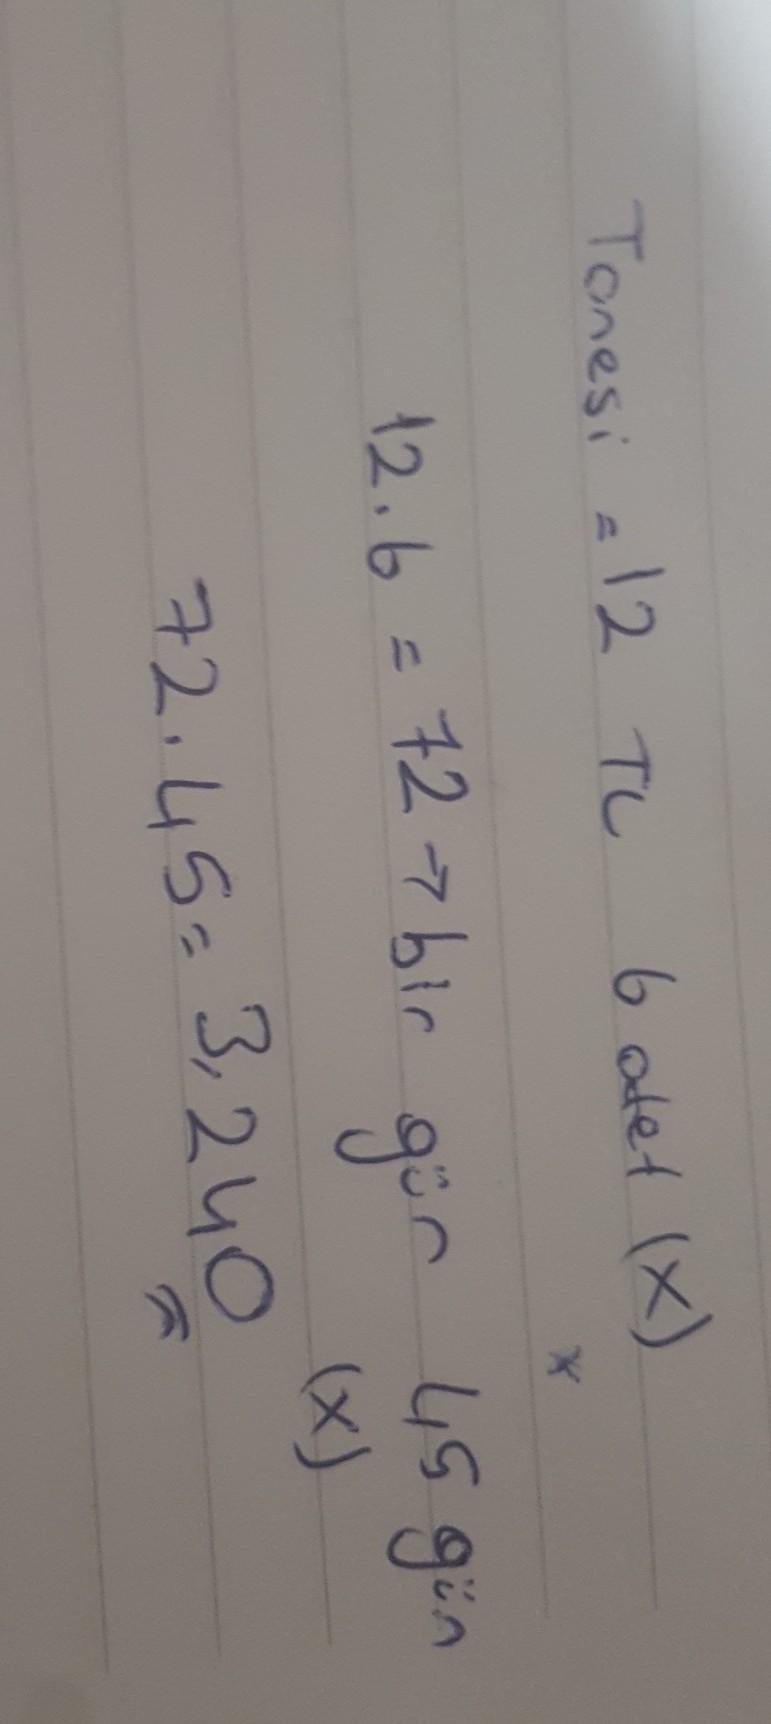 Tanesi = 12 TL 6 adet (x)
*
12.6 = 72 → bir gün 45 gün
(x)
72.45 = 3,240
=